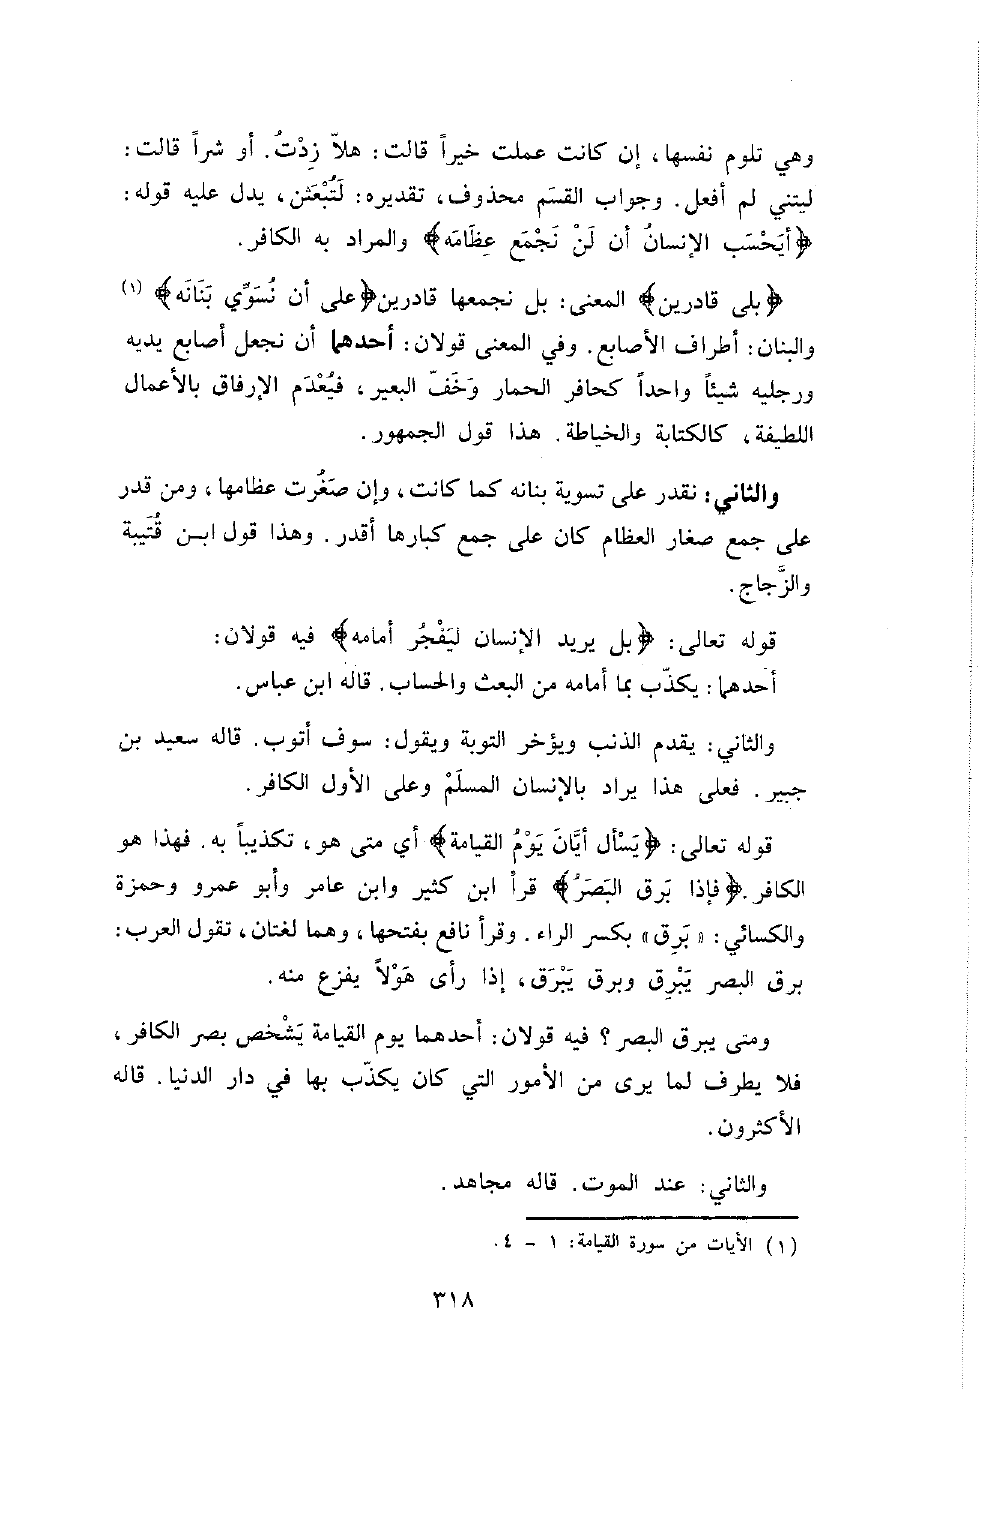 وهي تلوم نفسها، إن كانت عملت خيراً قالت: هلاّ زِدْتُ. أو شراً قالت:
ليتني لم أفعل. وجواب القسَم محذوف، تقديره: لَتُبْعَثن، يدل عليه قوله:
﴿أيَحْسَب الإنسانُ أن لَنْ نَجْمَع عِظَامَه﴾ والمراد به الكافر.
﴿بلى قادرين﴾ المعنى: بل نجمعها قادرين﴿على أن نُسَوِّي بَنَانَه﴾ (١)
والبنان: أطراف الأصابع. وفي المعنى قولان: أحدهما أن نجعل أصابع يديه
ورجليه شيئاً واحداً كحافر الحمار وَخَفّ البعير، فيُعْدَم الإرفاق بالأعمال
اللطيفة، كالكتابة والخياطة. هذا قول الجمهور.
والثاني: نقدر على تسوية بنانه كما كانت، وإن صَغُرت عظامها، ومن قدر
على جمع صغار العظام كان على جمع كبارها أقدر. وهذا قول ابـن قُتَيبة
والزَّجاج.
قوله تعالى: ﴿بل يريد الإنسان ليَفْجُر أمامه﴾ فيه قولان:
أحدهما: يكذّب بما أمامه من البعث والحساب. قاله ابن عباس.
والثاني: يقدم الذنب ويؤخر التوبة ويقول: سوف أتوب. قاله سعيد بن
جبير. فعلى هذا يراد بالإنسان المسلَمْ وعلى الأول الكافر.
قوله تعالى: ﴿يَسْأل أيَّانَ يَوْمُ القيامة﴾ أي متى هو، تكذيباً به. فهذا هو
الكافر.﴿فإذا بَرق البَصَرُ﴾ قرأ ابن كثير وابن عامر وأبو عمرو وحمزة
والكسائي: «بَرِق» بكسر الراء. وقرأ نافع بفتحها، وهما لغتان، تقول العرب:
برق البصر يَبْرِق وبرق يَبْرَق، إذا رأى هَوْلاً يفزع منه.
ومتى يبرق البصر؟ فيه قولان: أحدهما يوم القيامة يَشْخص بصر الكافر،
فلا يطرف لما يرى من الأمور التي كان يكذّب بها في دار الدنيا. قاله
الأكثرون.
والثاني: عند الموت. قاله مجاهد.
(١) الأيات من سورة القيامة: ١ - ٤.
٣١٨